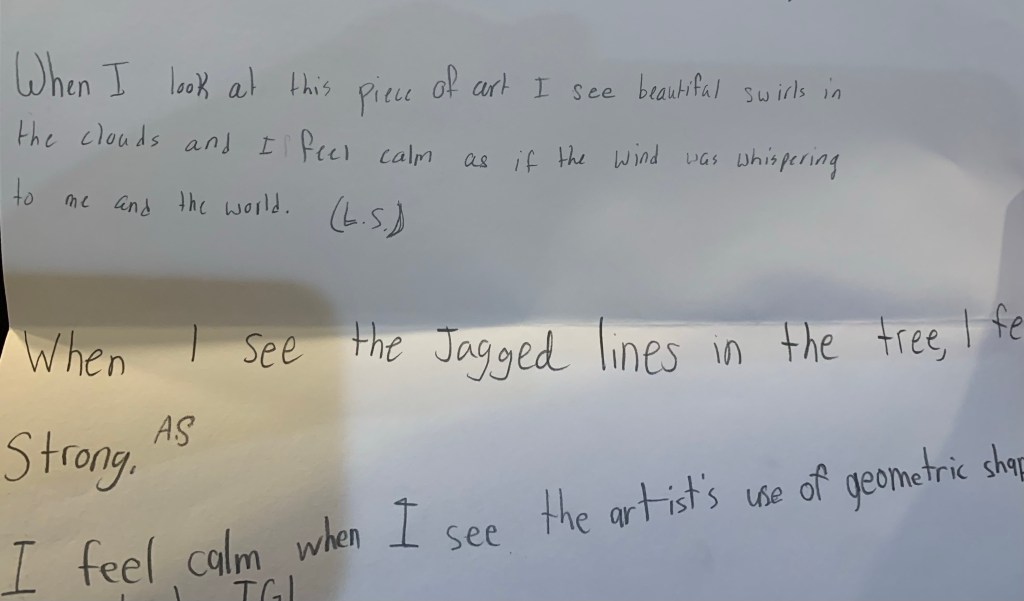 When I look at this piece of art I see beautiful swirls in
the clouds and I feel calm as if the wind was whispering
to me and the world. (L.S.)
When I see the Jagged lines in the tree, I fe
Strong. AS
I feel calm when I see the artist's use of geometric shap